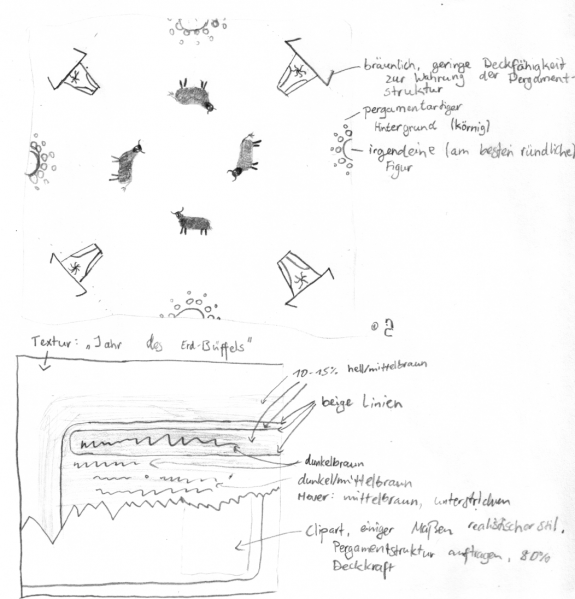 bräunlich, geringe Deckfähigkeit
zur Wahrung der Pergament-
struktur
pergamentartiger
Hintergrund (körnig)
irgendeine (am besten rundliche)
Figur
Textur: "Jahr des Erd-Büffels"
10-15% hell/mittelbraun
beige Linien
dunkelbraun
dunkel/mittelbraun
Hover: mittelbraun, unterstrichen
Clipart, einiger Maßen realistischer Stil.
Pergamentstruktur auftragen, 80%
Deckkraft